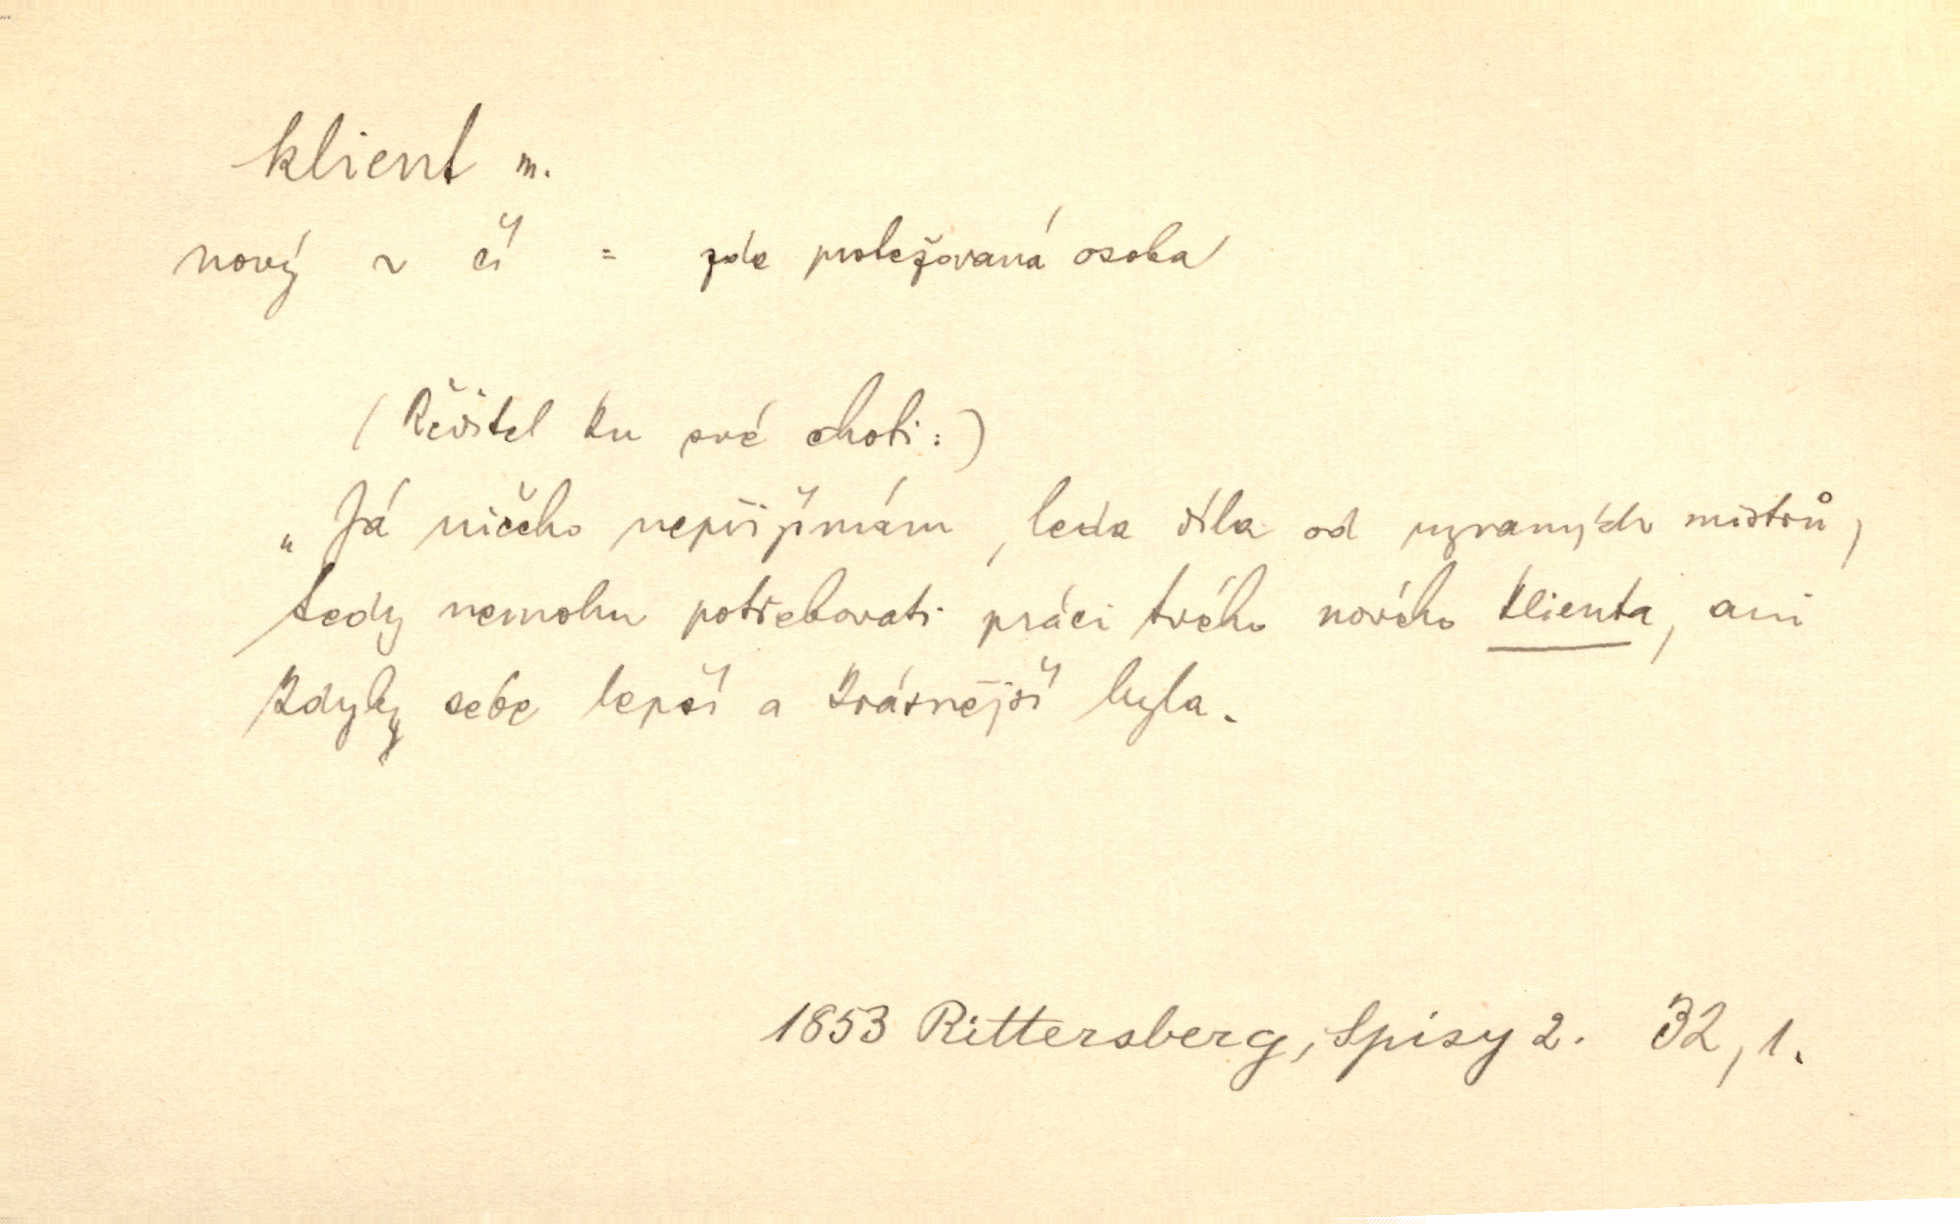 klient m.
nový ~ čí = zde protežovaná osoba
(Ředitel ku své choti:)
„Já ničeho nepřijímám, leda díla od uznaných mistrů,
tedy nemohu potřebovati práci tvého nového klienta, ani
kdyby sebe lepší a krásnější byla.
1853 Rittersberg, Spisy 2. 32, 1.